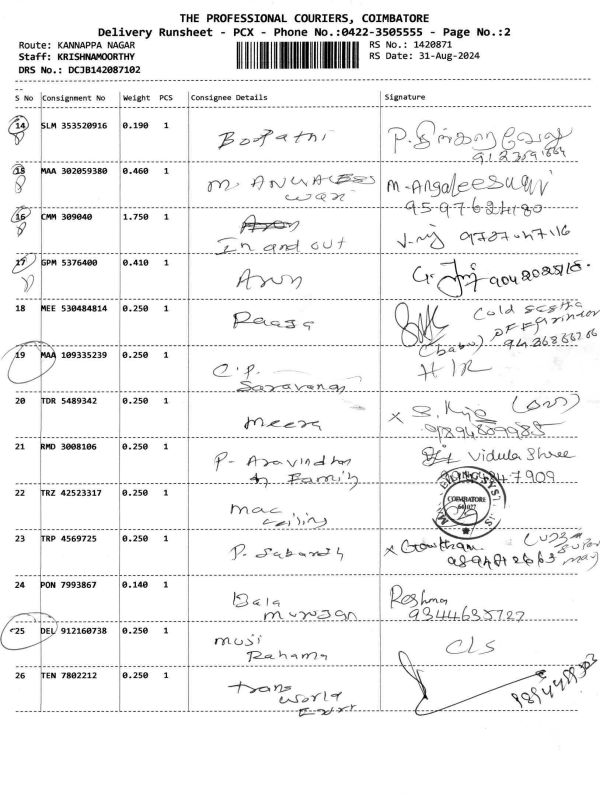 THE PROFESSIONAL COURIERS, COIMBATORE
Delivery Runsheet - PCX - Phone No.:0422-3505555 - Page No.:2
Route: KANNAPPA NAGAR RS No.: 1420871
Staff: KRISHNAMOORTHY RS Date: 31-Aug-2024
DRS No.: DCJB142087102
S No Consignment No Weight PCS Consignee Details Signature
14 SLM 353520916 0.190 1 Boopathi
15 MAA 302059380 0.460 1 M. M. Angaleeswari
9597624180
16 CMM 309040 1.750 1
In and out
17 GPM 5376400 0.410 1 Arun
18 MEE 530484814 0.250 1 Raaga
(babu)
19 MAA 109335239 0.250 1 C.P. HIR
Saravanan
20 TDR 5489342 0.250 1 Meera x
9894809985
21 RMD 3008106 0.250 1 P. Aravindhan Vidula Shree
Family
22 TRZ 42523317 0.250 1 Mac COIMBATORE
ceiling
23 TRP 4569725 0.250 1 P. x Gowtham
24 PON 7993867 0.140 1 Bala Reshma
Murugan 9344635727
25 DEL 912160738 0.250 1 CLS
Rahama
26 TEN 7802212 0.250 1 trans
world